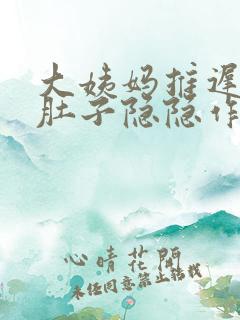 大姨妈推迟
肚子隐隐作
心晴花開
未经同意禁止转载